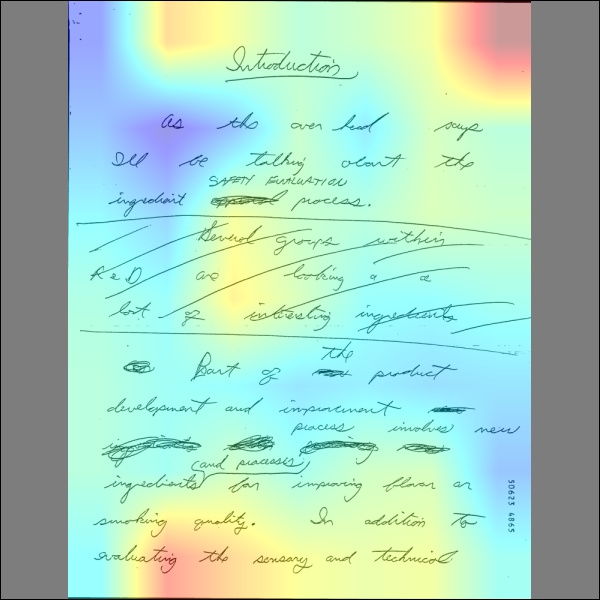 Introduction
As the over head says
I'll be talking about the
SAFETY EVALUATION
ingredient process.
Several groups within
R & D are looking a a
lost of intresting ingredients
the
Part of product
development and improvement
process involves new
(and processes)
ingredients for improving flavor or
smoking quality. In addition to
evaluating the sensory and technical
50623 4865